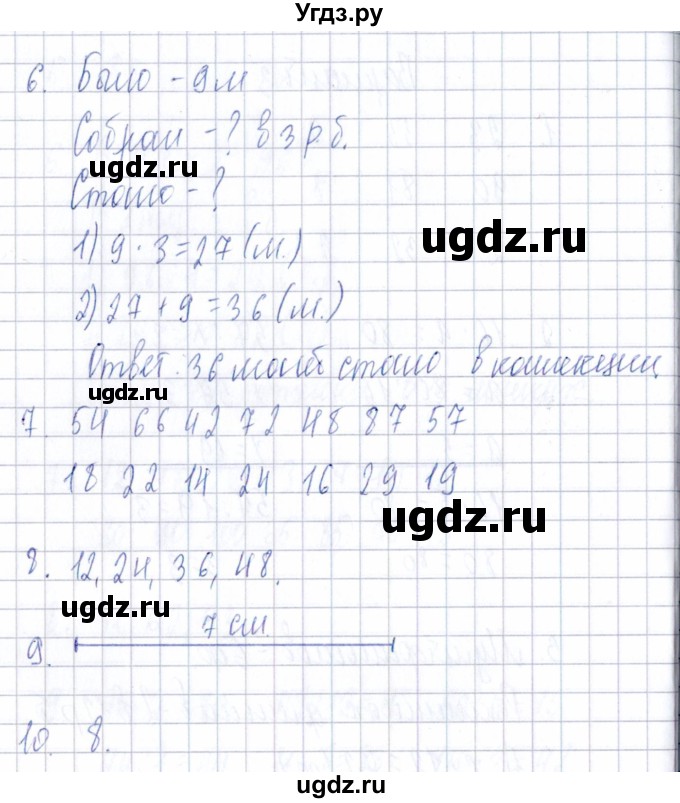 Угдз.ру
6. Было - 9 м
Собрал - ? в 3 р. б.
ugdz.ru
Стало - ?
1) 9 · 3 = 27 (м.)
ugdz.ru
2) 27 + 9 = 36 (м.)
Ответ: 36 моней стало в коллекции.
ugdz.ru
7. 54 66 42 72 48 87 57
18 22 14 24 16 29 19
ugdz.ru
8. 12, 24, 36, 48.
ugdz.ru
7 см
9.
10. 8.
ugdz.ru